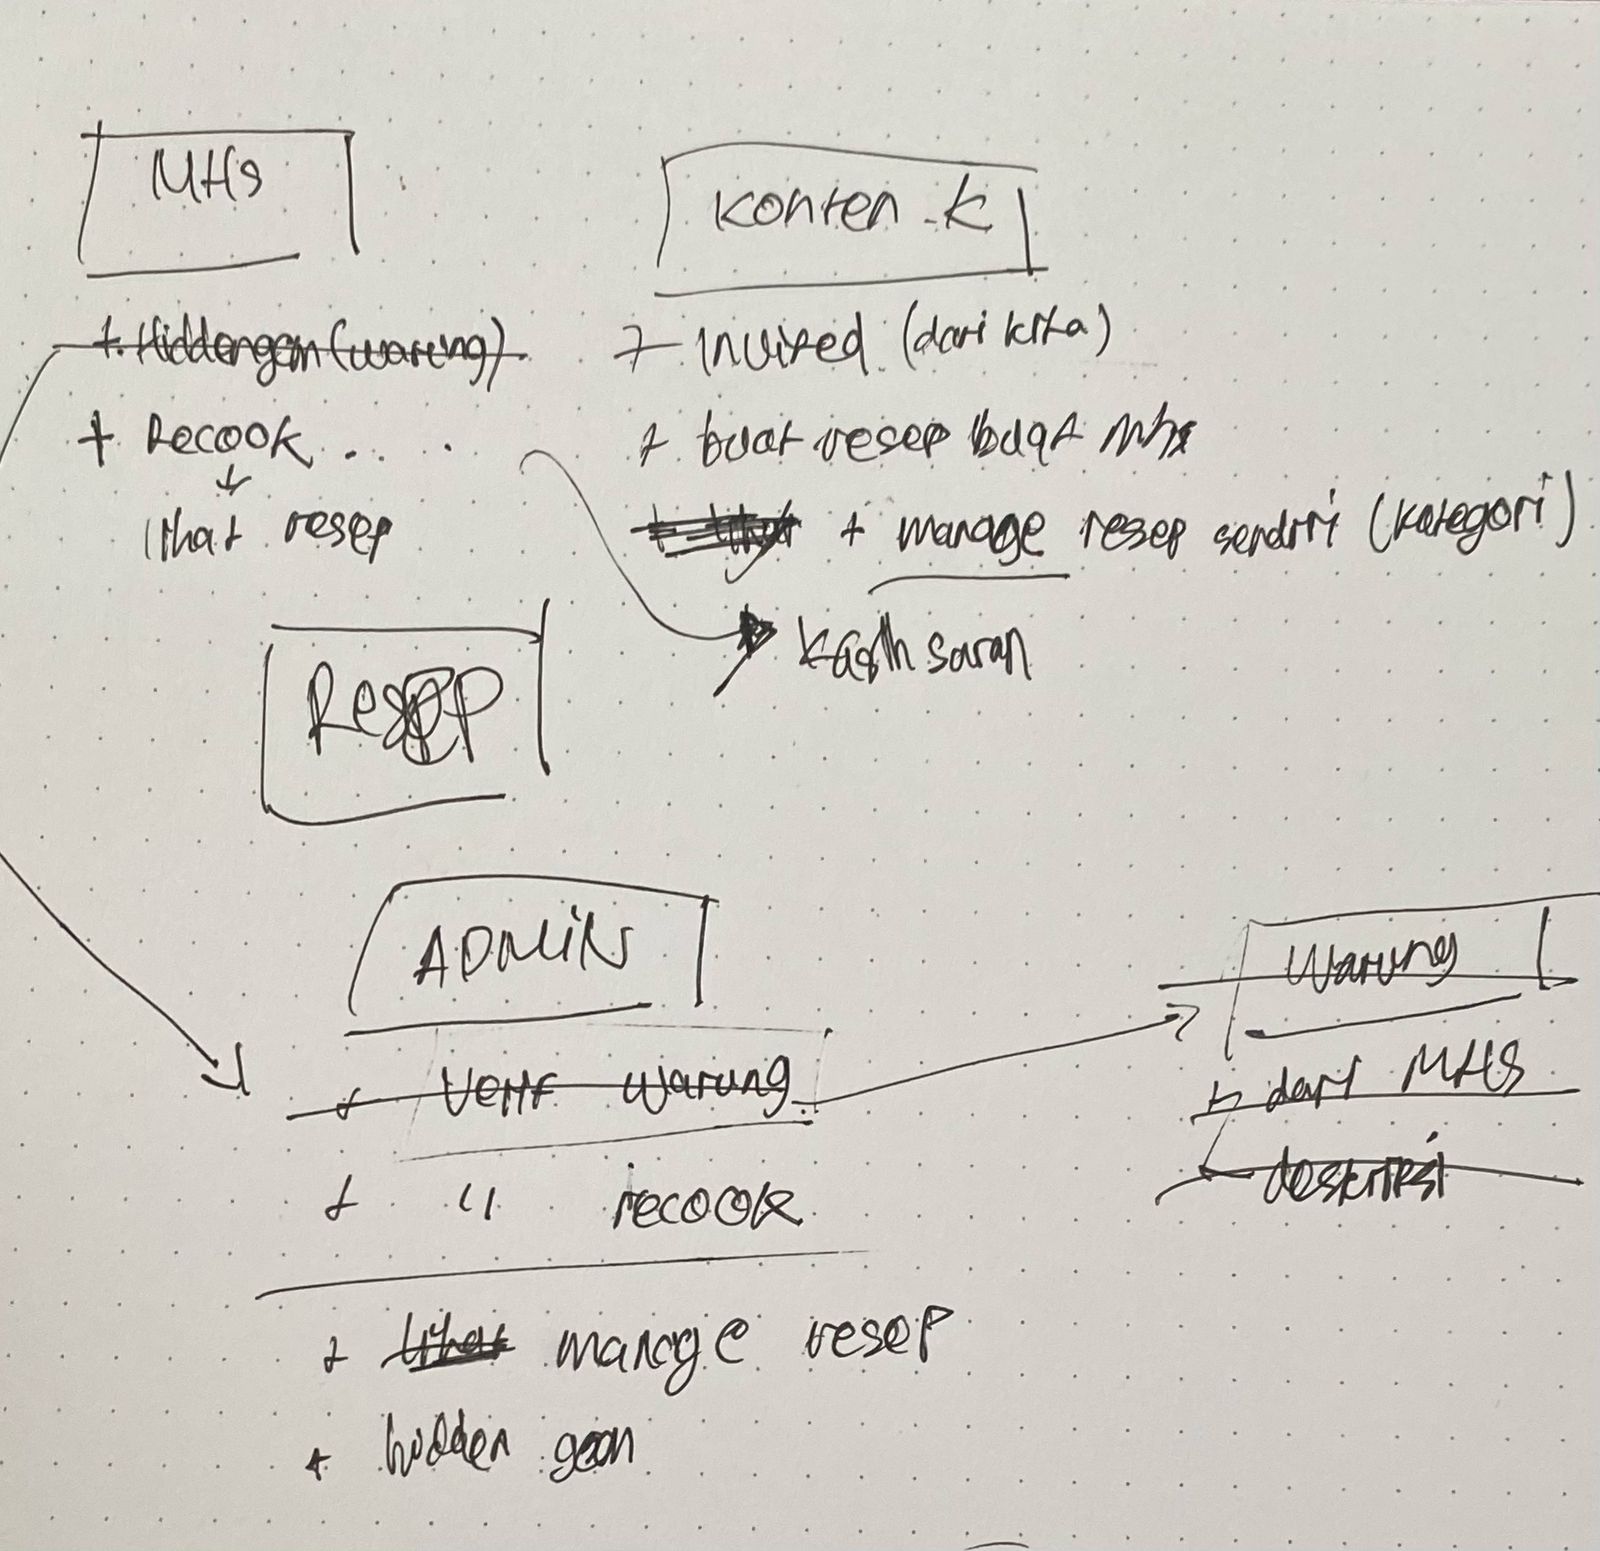 MHS
+ Hiddengem (warung)
+ Recook . . .
lihat resep
Konten . K
+ Invited (dari kita)
+ buat resep buat mhs
+ lihat + manage resep sendiri (kategori)
Kasih saran
Resep
ADMIN
+ Verif warung
+ " recook
+ lihat manage resep
+ hidden gem
Warung
dari MHS
deskripsi